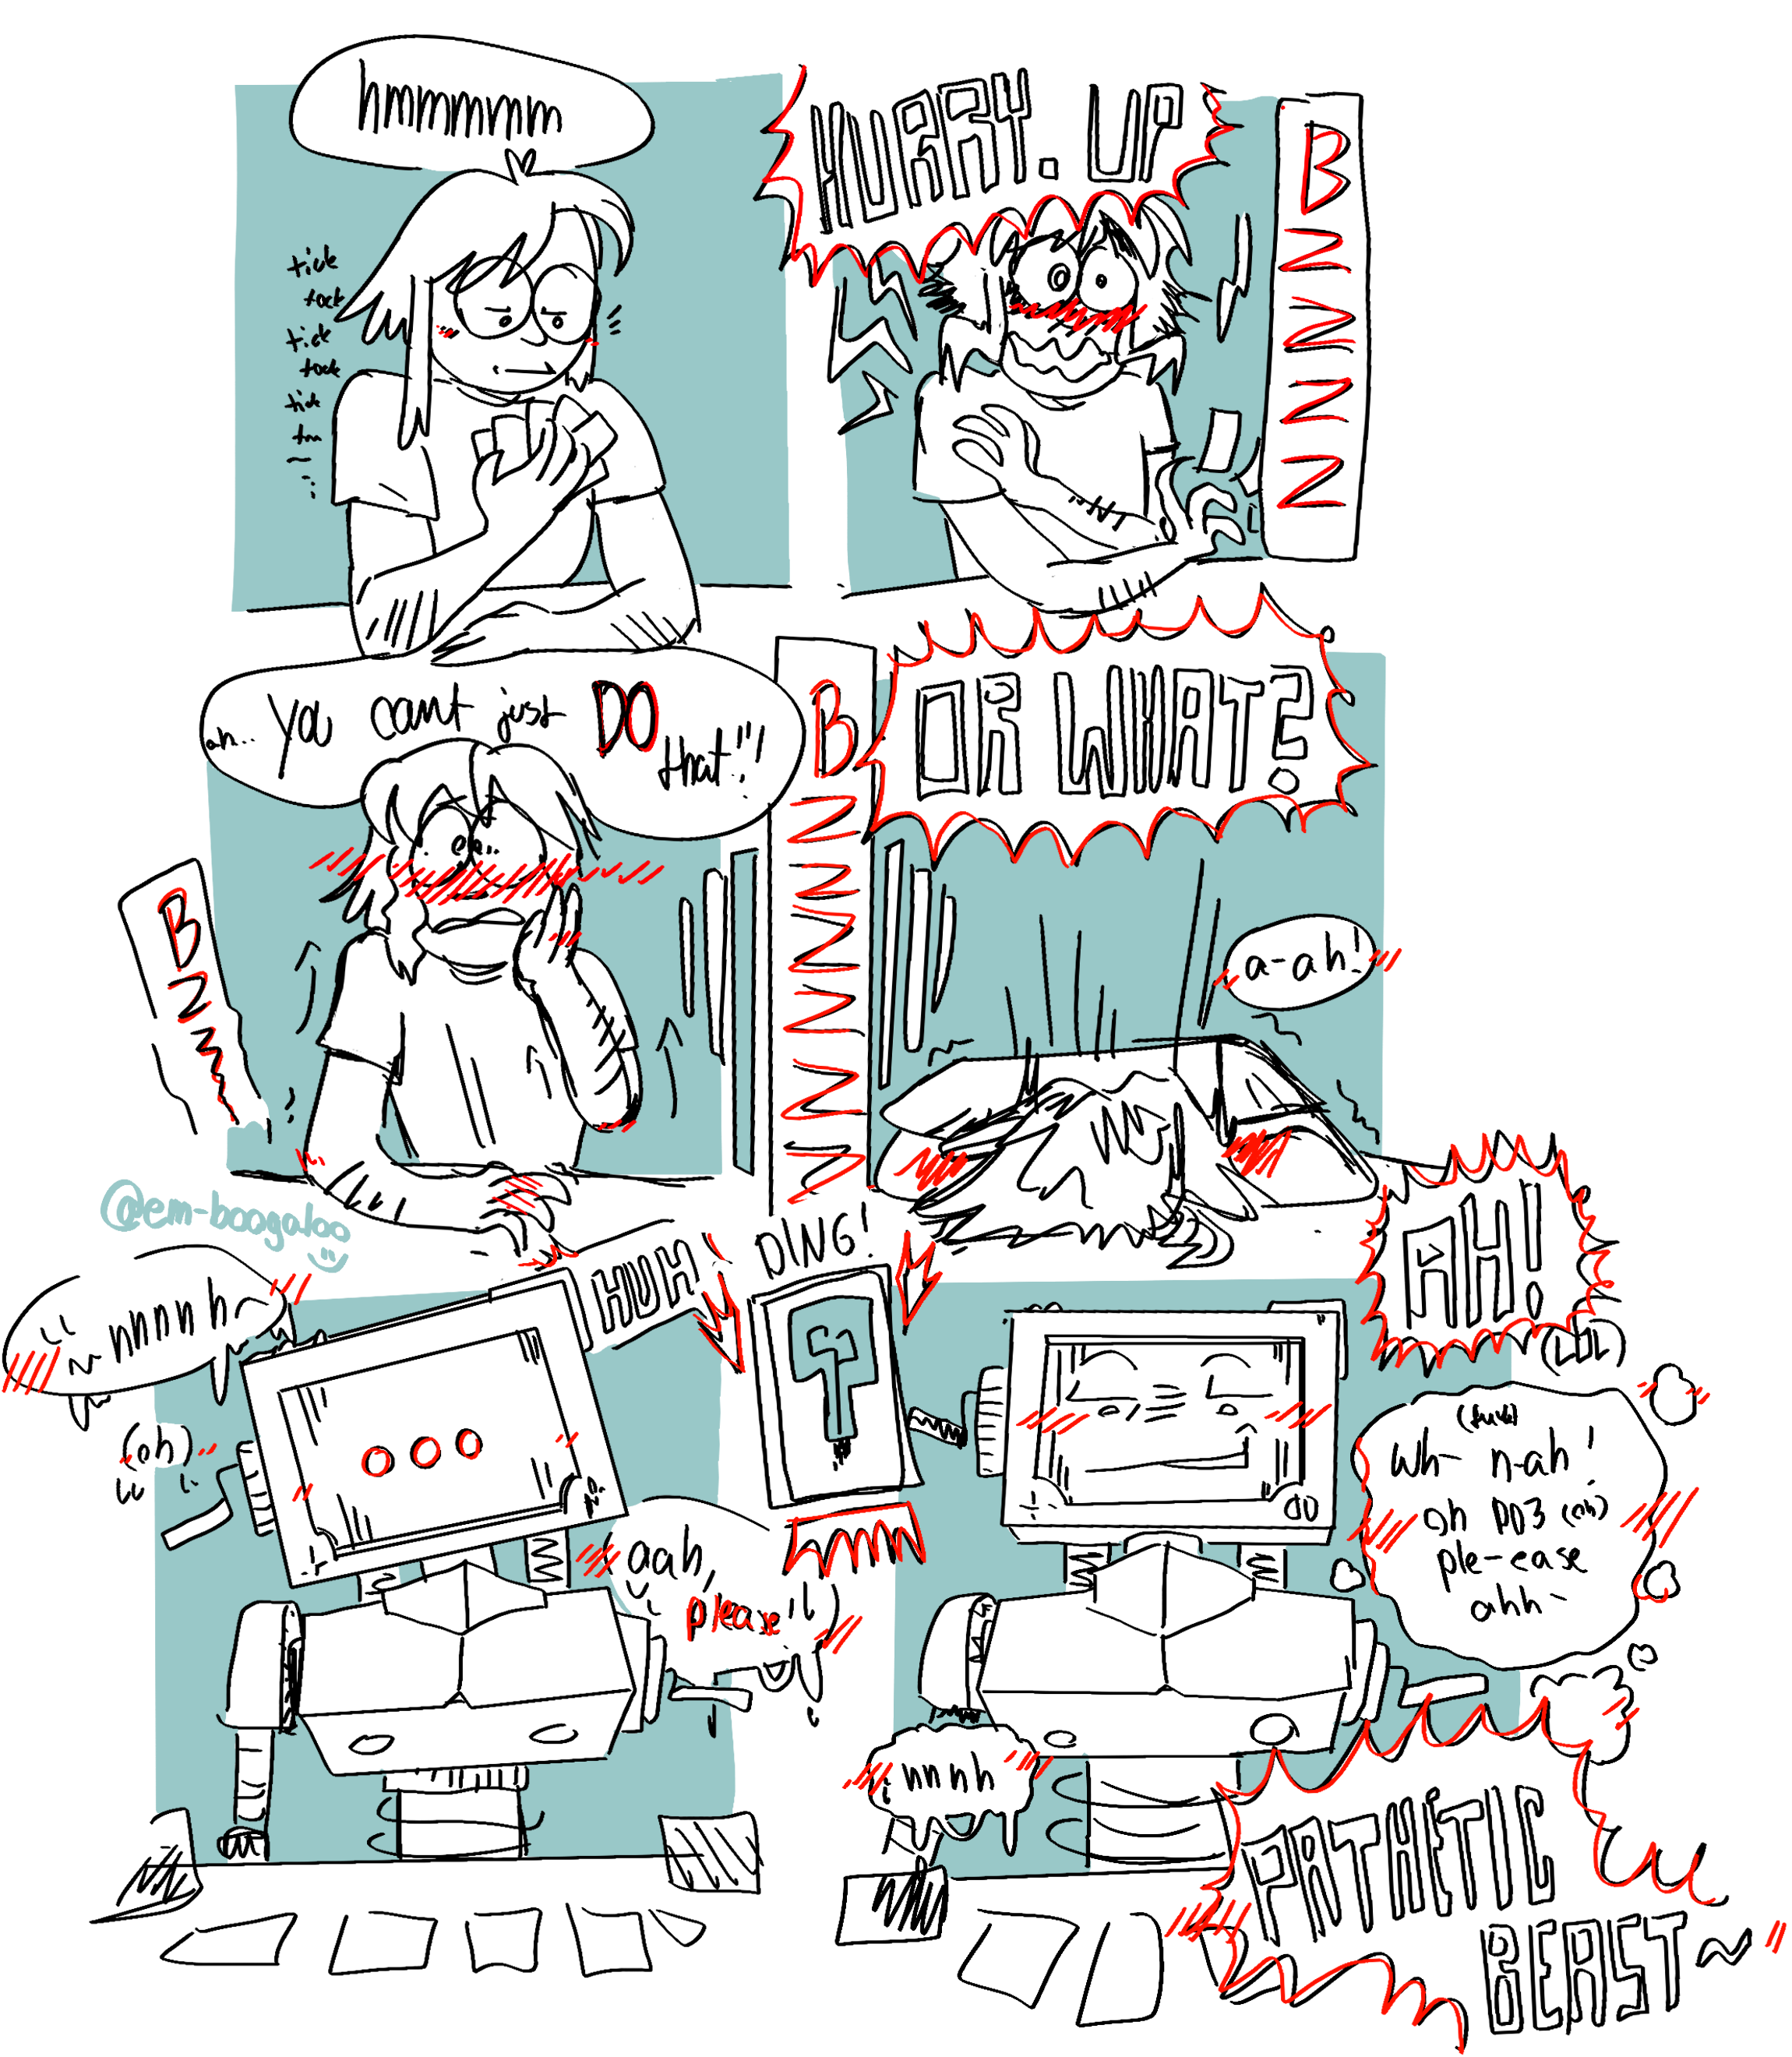 hmmmmm
tick
tock
tick
tock
tick
HURRY. UP
BZZZZ
ah.. you cant just DO
that!!!
BZZ
BZZZZZZZ
OR WHAT?
a-ah!
@em-boogaloo
nnnnh~
HUH
(oh)
aah,
please!!
DING!
AH!
(LOL)
(fuck)
Wh- n-ah!
oh PO3 (oh)
ple-ease
ahh~
nnnh
PATHETIC
BEAST~